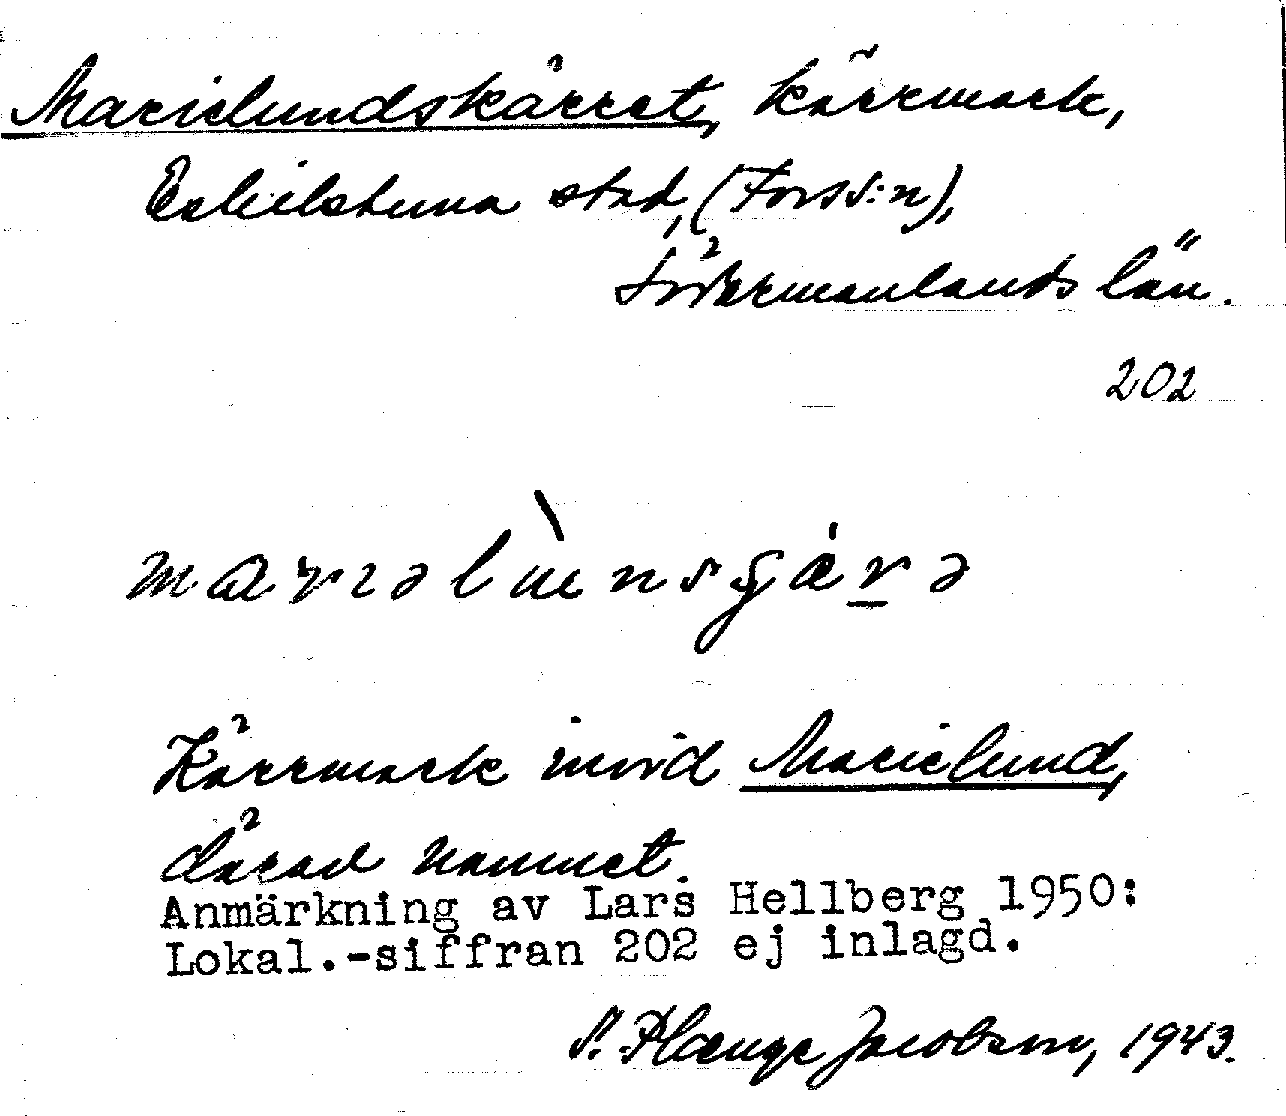 Marielundskärret, kärrmark,
Eskilstuna stad, (Fors s:n),
Södermanlands län.
202
Kärrmark invid Marielund,
därav namnet.
Anmärkning av Lars Hellberg 1950:
Lokal.-siffran 202 ej inlagd.
S. Plænge Jacobson, 1943.